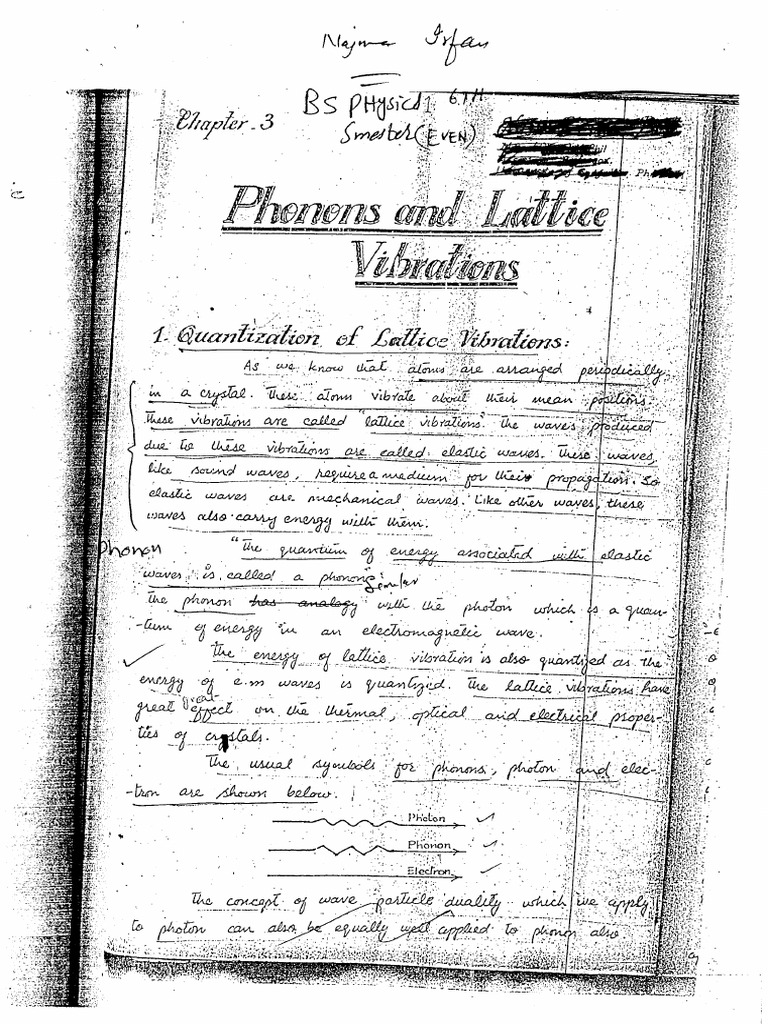 Najma Irfan
BS PHysics 6TH
Chapter-3
Smester (EVEN)
Phonons and Lattice
Vibrations
1. Quantization of Lattice Vibrations:
As we know that atoms are arranged periodically
in a crystal. These atoms vibrate about their mean positions.
These vibrations are called "lattice vibrations". The waves produced
due to these vibrations are called elastic waves. These waves,
like sound waves, require a medium for their propagation. So
elastic waves are mechanical waves. Like other waves, these
waves also carry energy with them.
phonon
"The quantum of energy associated with elastic
waves is called a phonon".
similar
The phonon has analogy with the photon which is a quan-
-tum of energy in an electromagnetic wave.
The energy of lattice vibration is also quantized as the
energy of e.m waves is quantized. The lattice vibrations have
great effect on the thermal, optical and electrical proper-
ties of crystals.
The usual symbols for phonons, photon and elec-
-tron are shown below.
Photon
Phonon
Electron
The concept of wave particle duality which we apply
to photon can also be equally well applied to phonon also